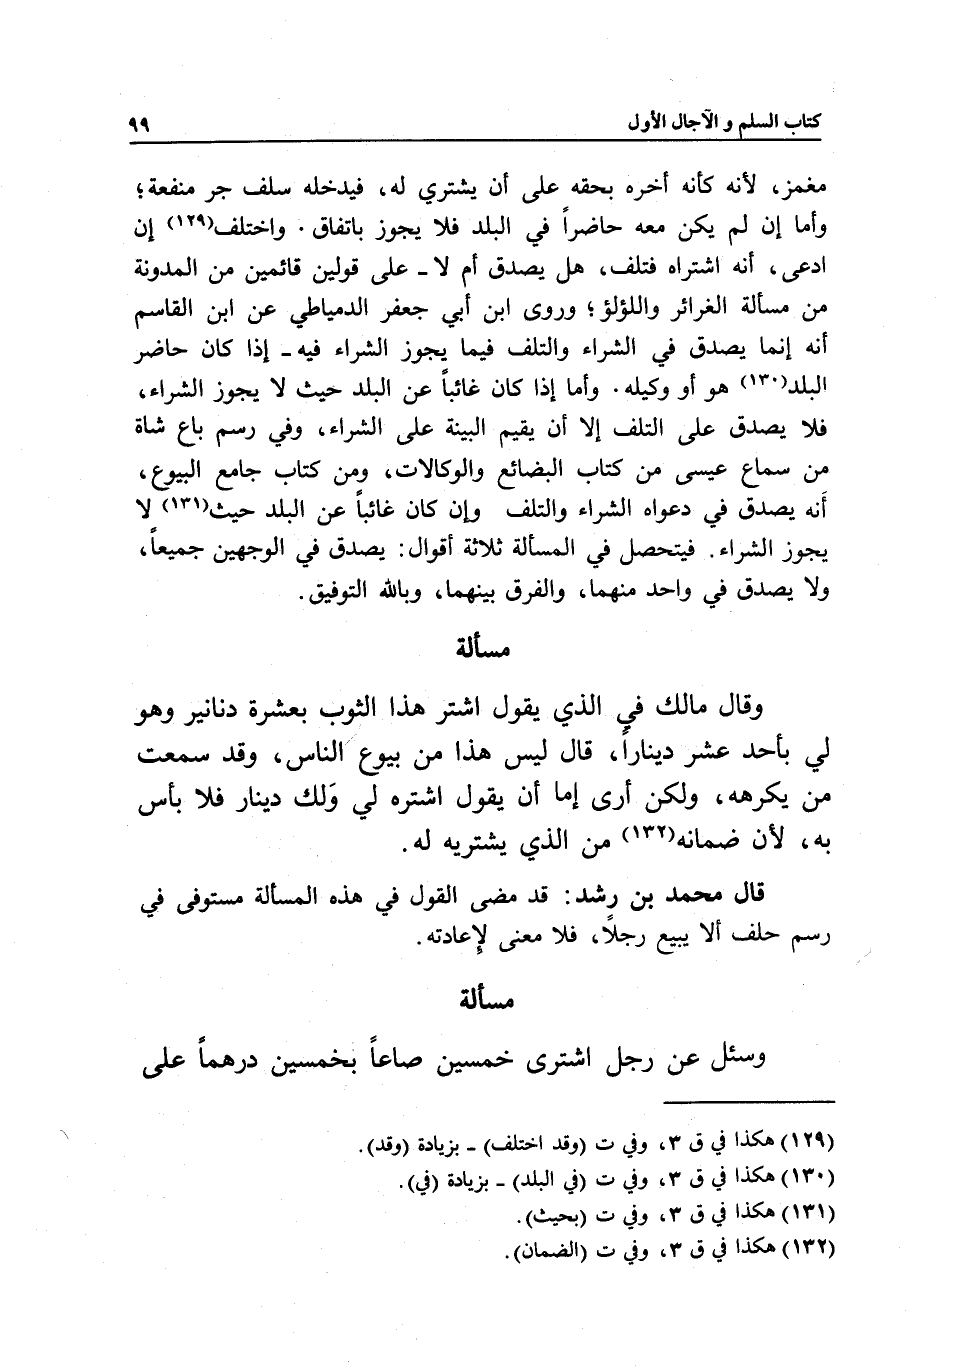 كتاب السلم و الآجال الأول ٩٩
مغمز، لأنه كأنه أخره بحقه على أن يشتري له، فيدخله سلف جر منفعة؛
وأما إن لم يكن معه حاضراً في البلد فلا يجوز باتفاق. واختلف(١٢٩) إن
ادعى، أنه اشتراه فتلف، هل يصدق أم لا ـ على قولين قائمين من المدونة
من مسألة الغرائر واللؤلؤ؛ وروى ابن أبي جعفر الدمياطي عن ابن القاسم
أنه إنما يصدق في الشراء والتلف فيما يجوز الشراء فيه ـ إذا كان حاضر
البلد(١٣٠) هو أو وكيله. وأما إذا كان غائباً عن البلد حيث لا يجوز الشراء،
فلا يصدق على التلف إلا أن يقيم البينة على الشراء، وفي رسم باع شاة
من سماع عيسى من كتاب البضائع والوكالات، ومن كتاب جامع البيوع،
أَنه يصدق في دعواه الشراء والتلف وإن كان غائباً عن البلد حيث(١٣١) لا
يجوز الشراء. فيتحصل في المسألة ثلاثة أقوال: يصدق في الوجهين جميعاً،
ولا يصدق في واحد منهما، والفرق بينهما، وبالله التوفيق.
مسألة
وقال مالك في الذي يقول اشتر هذا الثوب بعشرة دنانير وهو
لي بأحد عشر ديناراً، قال ليس هذا من بيوع الناس، وقد سمعت
من يكرهه، ولكن أرى إما أن يقول اشتره لي وَلك دينار فلا بأس
به، لأن ضمانه(١٣٢) من الذي يشتريه له.
قال محمد بن رشد: قد مضى القول في هذه المسألة مستوفى في
رسم حلف ألا يبيع رجلًا، فلا معنى لإعادته.
مسألة
وسئل عن رجل اشترى خمسين صاعاً بخمسين درهماً على
(١٢٩) هكذا في ق ٣، وفي ت (وقد اختلف) ـ بزيادة (وقد).
(١٣٠) هكذا في ق ٣، وفي ت (في البلد) ـ بزيادة (في).
(١٣١) هكذا في ق ٣، وفي ت (بحيث).
(١٣٢) هكذا في ق ٣، وفي ت (الضمان).